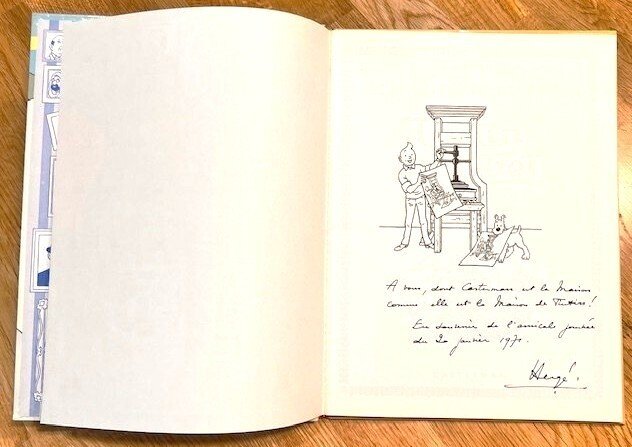 A vous, dont Casterman est la Maison
comme elle est la Maison de Tintin !
En souvenir de l'amicale journée
du 20 janvier 1971.
Hergé.